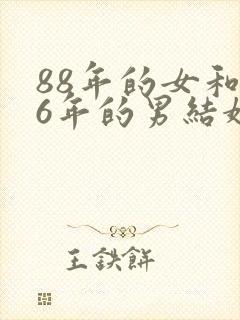 88年的女和
6年的男結婚
王鉄餅